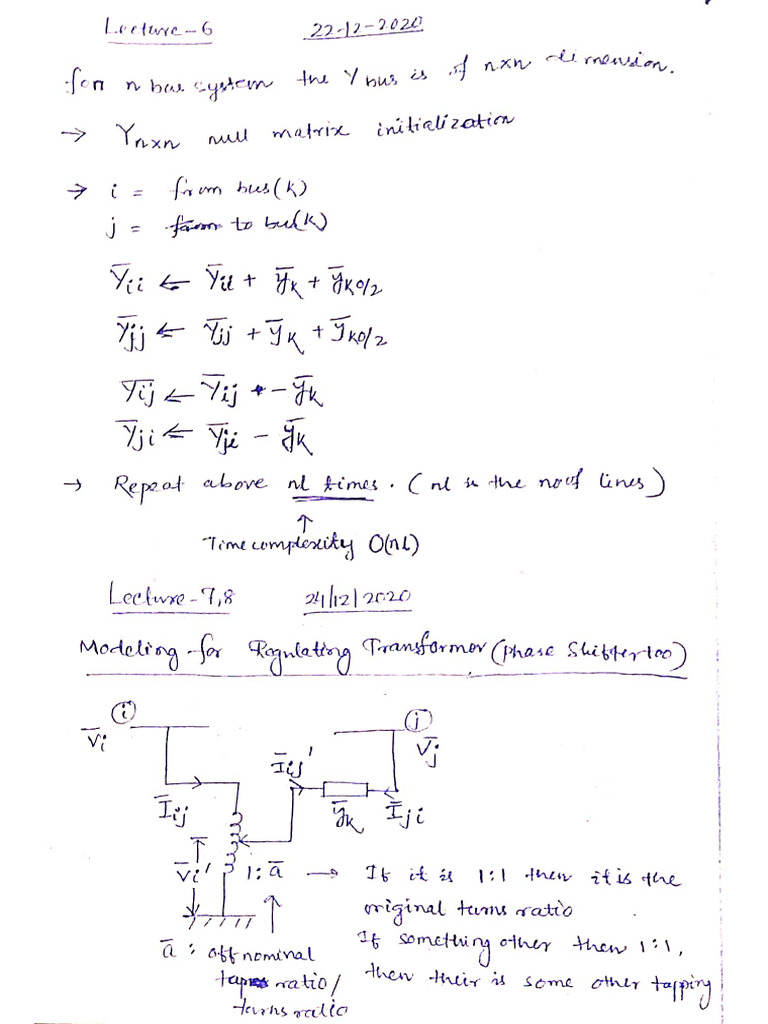 Lecture-6 22-12-2020
for n bus system the Y bus is of nxn dimension.
→ Ynxn null matrix initialization
→ i = from bus(k)
j = to bus(k)
Y̅ii ← Y̅ii + y̅k + y̅k0/2
Y̅jj ← Y̅jj + y̅k + y̅k0/2
Y̅ij ← Y̅ij - y̅k
Y̅ji ← Y̅ji - y̅k
→ Repeat above nl times. (nl is the no of lines)
↑
Time complexity O(nl)
Lecture-7,8 24/12/2020
Modeling for Regulating Transformer (Phase Shifter too)
i j
V̅i V̅j
I̅ij'
I̅ij y̅k I̅ji
V̅i' 1:a̅ → If it is 1:1 then it is the
original turns ratio
If something other then 1:1,
then their is some other tapping
a̅ : off nominal
tap ratio/
turns ratio